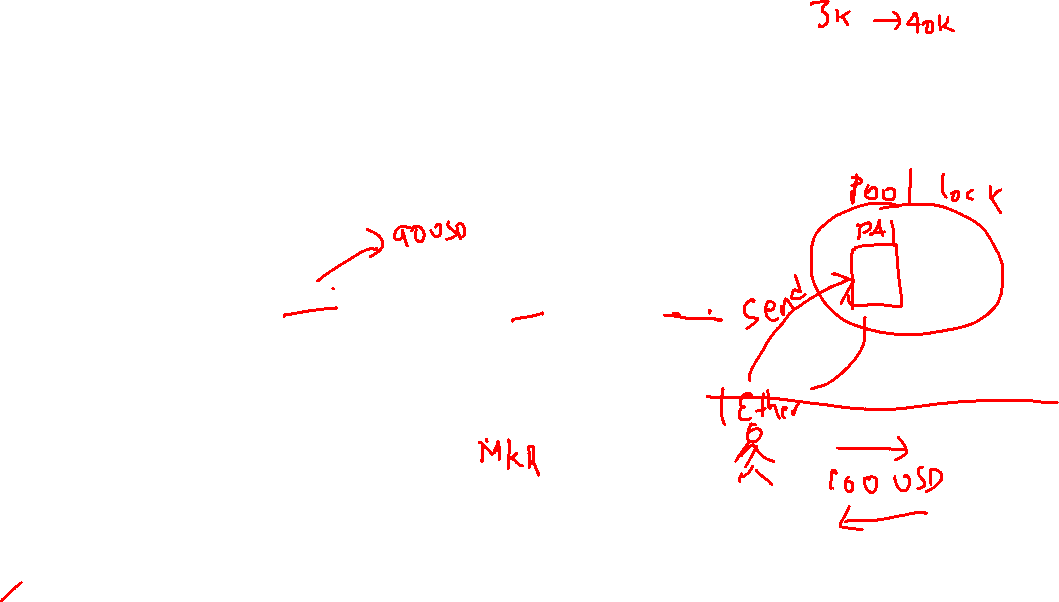 3K → 40K
Pool lock
PA
90 USD
Send
1 Ether
MKR
100 USD